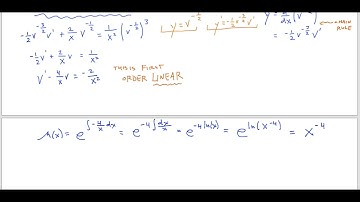 -½ v^(-3/2) v' + 2/x v^(-1/2) = 1/x² (v^(-1/2))³
y = v^(-1/2)
y' = -½ v^(-3/2) v'
dx
(v')
= -½ v^(-3/2) v'
CHAIN RULE
-½ v' + 2/x v = 1/x²
v' - 4/x v = -2/x²
THIS IS FIRST
ORDER LINEAR
μ(x) = e^(∫ -4/x dx) = e^(-4∫ dx/x) = e^(-4 ln(x)) = e^(ln(x^-4)) = x^-4